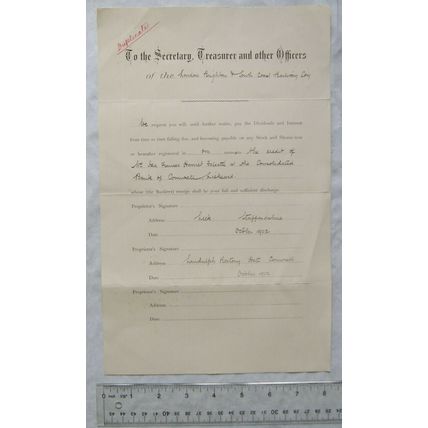 Duplicate
To the Secretary, Treasurer and other Officers
of the London Brighton & South Coast Railway Coy
We request you will until further notice, pay the Dividends and Interest
from time to time falling due, and becoming payable on any Stock and Shares now
or hereafter registered in our names the credit of
Frances Harriet at the Consolidated
Bank of Cornwall Liskeard
whose (the Bankers) receipt shall be your full and sufficient discharge.
Proprietor's Signature
Address Leek Staffordshire
Date October 1902
Proprietor's Signature
Address Landulph Rectory Hatt Cornwall
Date October 1902
Proprietor's Signature
Address
Date